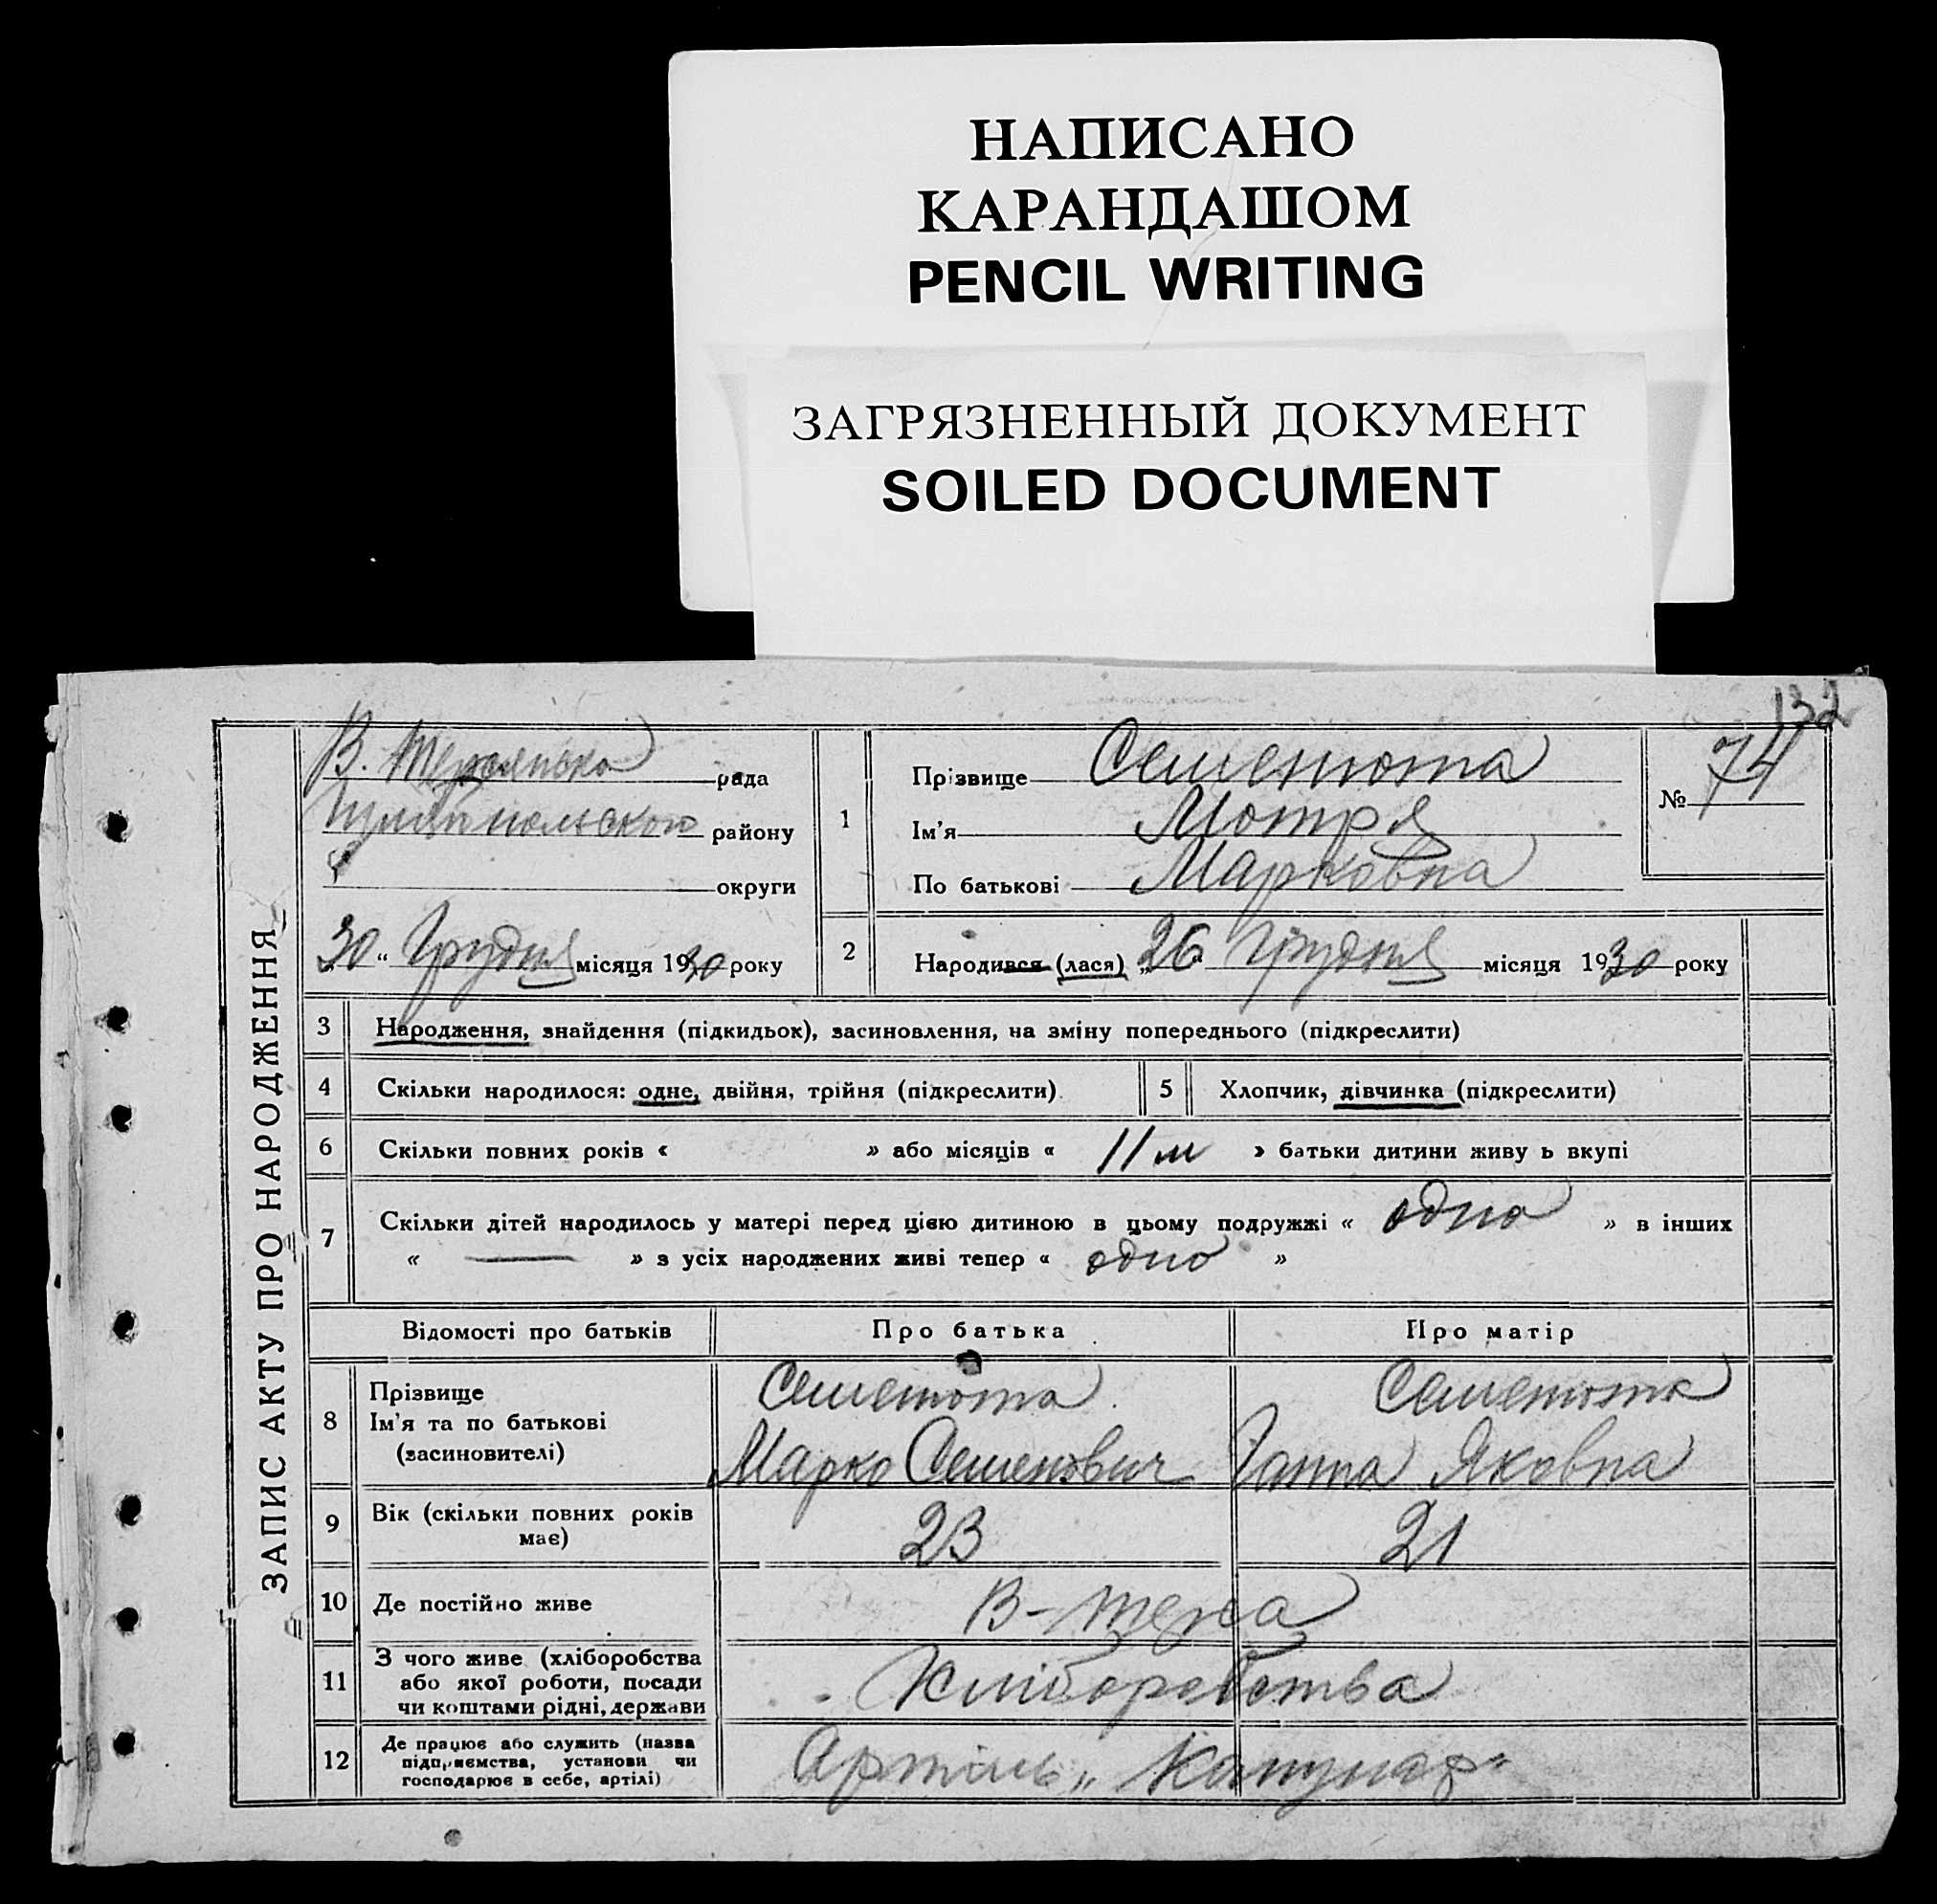 НАПИСАНО
КАРАНДАШОМ
PENCIL WRITING
ЗАГРЯЗНЕННЫЙ ДОКУМЕНТ
SOILED DOCUMENT
132
ЗАПИС АКТУ ПРО НАРОДЖЕННЯ
В. рада
району
округи
30 " Грудня місяця 1930 року
1
Прізвище Семенюта
Ім'я Мотря
По батькові Марковна
№ 74
2 Народився (лася) „26 Грудня місяця 1930 року
3 Народження, знайдення (підкидьок), засиновлення, на зміну попереднього (підкреслити)
4 Скільки народилося: одне, двійня, трійня (підкреслити) 5 Хлопчик, дівчинка (підкреслити)
6 Скільки повних років « » або місяців « 11 м » батьки дитини живу ь вкупі
7 Скільки дітей народилось у матері перед цією дитиною в цьому подружжі « одно » в інших
« — » з усіх народжених живі тепер « одно »
Відомості про батьків Про батька Про матір
8 Прізвище Семенюта Семенюта
Ім'я та по батькові Марко Семенович Ганна Яковна
(засиновителі)
9 Вік (скільки повних років має) 23 21
10 Де постійно живе В-
11 З чого живе (хліборобства Хліборобства
або якої роботи, посади
чи коштами рідні, держави
12 Де працює або служить (назва Артіль
підприємства, установи чи
господарює в себе, артілі)